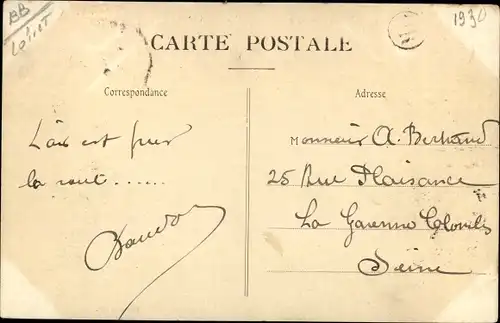 BB
Loiret
1930
CARTE POSTALE
Correspondance
Adresse
L'air est pur
la rout......
Monsieur A. Bertrand
25 Rue Plaisance
La Garenne Colombes
Seine